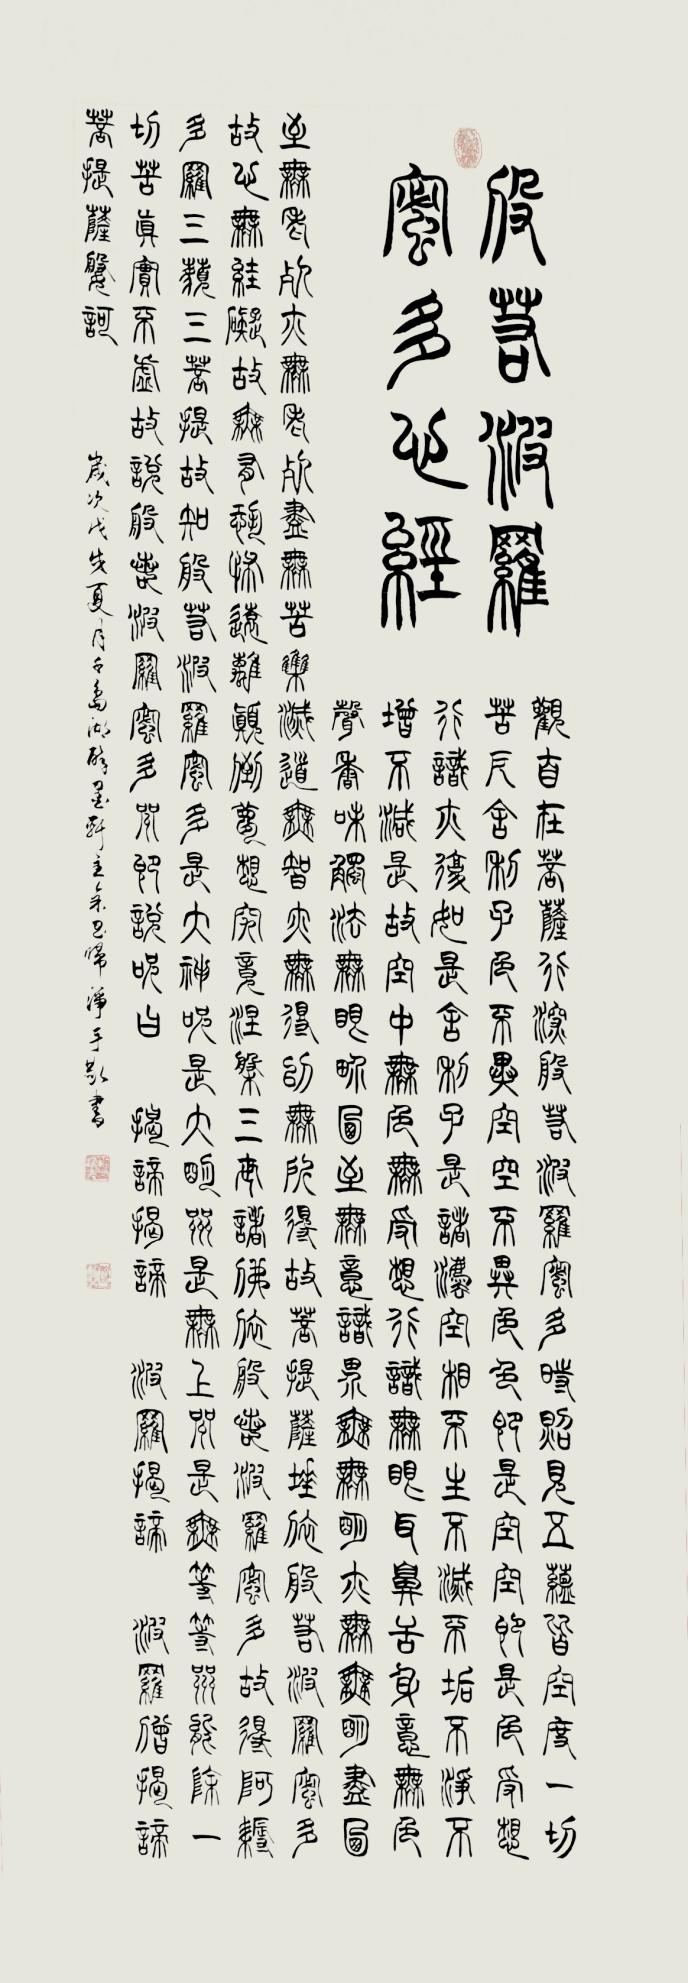 般若波羅
蜜多心經
觀自在菩薩行深般若波羅蜜多時照見五蘊皆空度一切
苦厄舍利子色不異空空不異色色即是空空即是色受想
行識亦復如是舍利子是諸法空相不生不滅不垢不淨不
增不減是故空中無色無受想行識無眼耳鼻舌身意無色
聲香味觸法無眼界乃至無意識界無無明亦無無明盡乃
至無老死亦無老死盡無苦集滅道無智亦無得以無所得故菩提薩埵依般若波羅蜜多
故心無絓礙故無有恐怖遠離顛倒夢想究竟涅槃三世諸佛依般若波羅蜜多故得阿耨
多羅三藐三菩提故知般若波羅蜜多是大神咒是大明咒是無上咒是無等等咒能除一
切苦真實不虛故說般若波羅蜜多咒即說咒曰 揭諦揭諦 波羅揭諦 波羅僧揭諦
菩提薩婆訶
歲次戊戌夏月千島湖醉墨軒主 淨手敬書